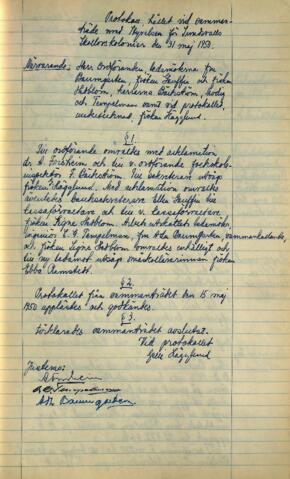 Protokoll, hållet vid samman-
träde med styrelsen för Sundsvalls
Skollovskolonier den 31 maj 1950.
Närvarande: Herr Ordföranden, ledamöterna fru
Baumgarten, fröken Stauffer och fröken
Hallblom, herrarna Bäckström,
och Tempelman samt vid protokollet,
undertecknad, fröken Hägglund.
§ 1.
Till ordförande omvaldes med acklamation
dr A. Forsheim och till v. ordförande folkskole-
inspektör F. Bäckström. Till sekreterare utsågs
fröken Hägglund. Med acklamation omvaldes
Bankkassören Ellen Stauffer till
kassaförvaltare och till v. kassaförvaltare
fröken Signe Hallblom. Arbetsutskottets ledamöter
ingenjör C. G. Tempelman, fru Ada Baumgarten sammankallande,
och fröken Signe Hallblom omvaldes enhälligt och
till ny ledamot utsågs småskollärarinnan fröken
Ebba Ramstedt.
§ 2.
Protokollet från sammanträdet den 15 maj
1950 upplästes och godkändes.
§ 3.
Förklarades sammanträdet avslutat.
Vid protokollet
Hägglund
Justeras:
Tempelman
Ada Baumgarten